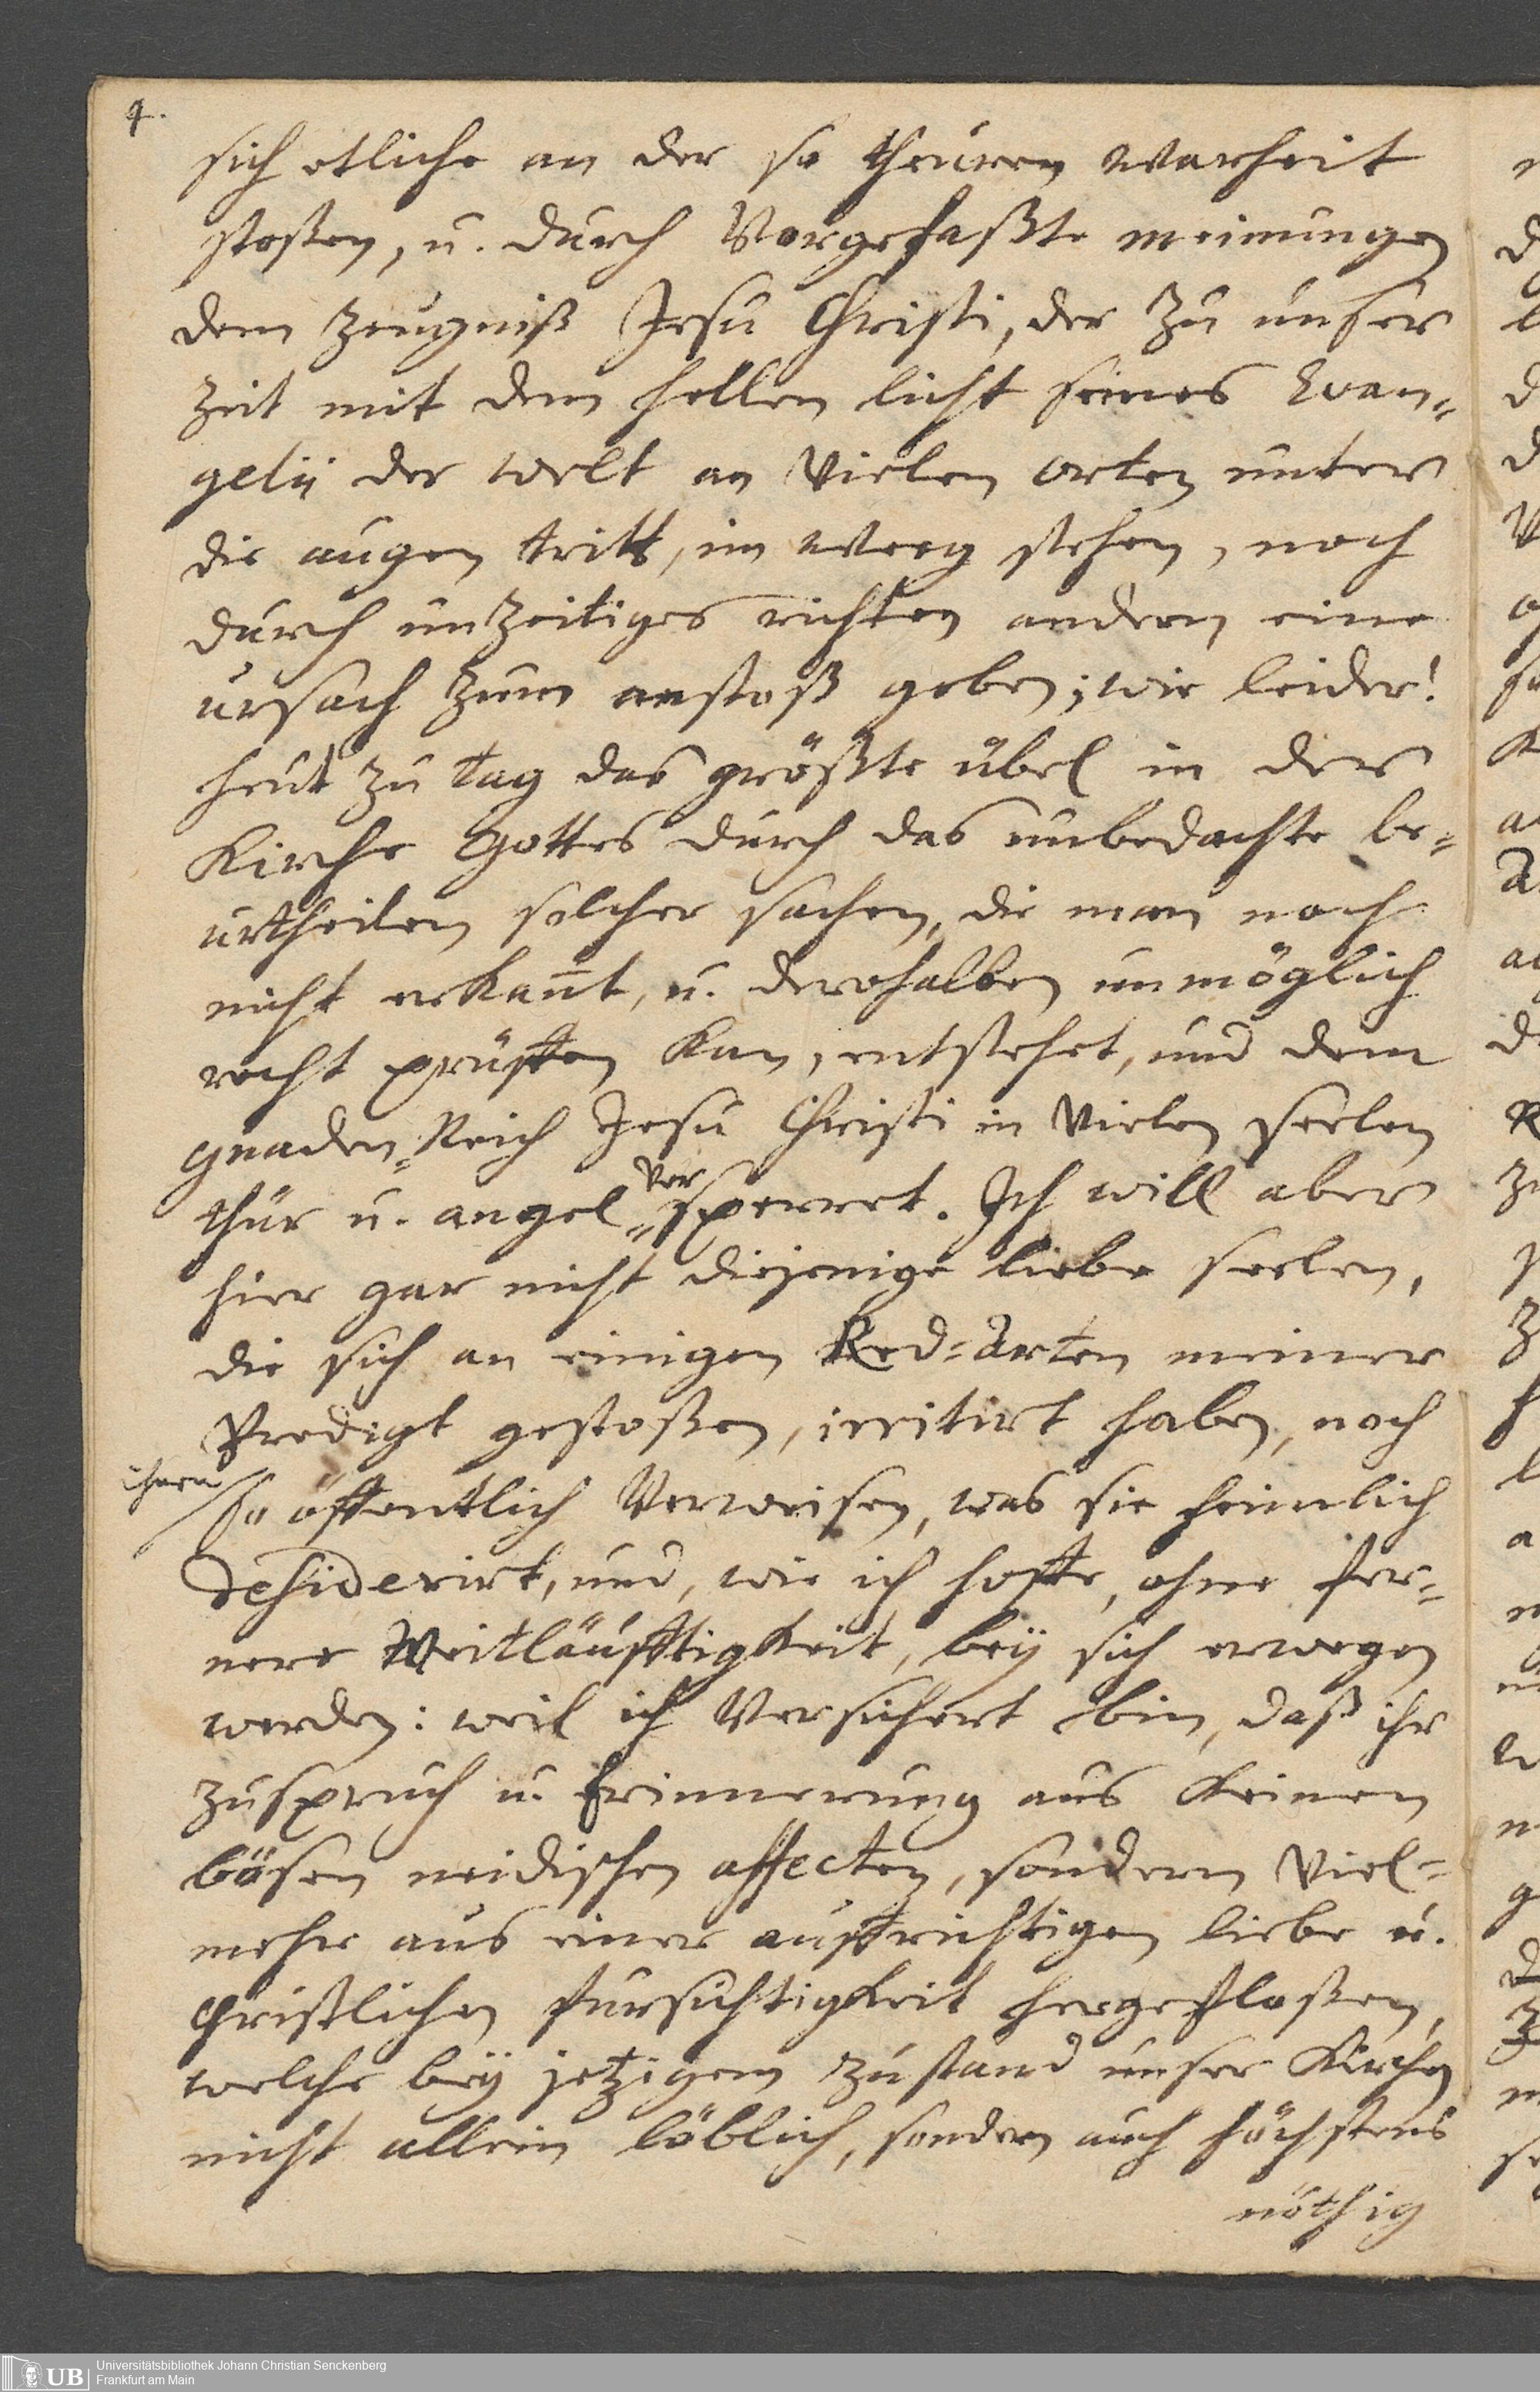 4.
sich etliche an der so theuren warheit
stoßen, u. durch Vorgefaßte meinungen
dem zeugniß Jesu Christi, der zu unser
zeit mit dem hellen licht seines Evan=
gelij der welt an Vielen orten unter
die augen tritt, im weeg stehen, noch
durch unzeitiges richten andern eine
ursach zum anstoß geben; wie leider!
heut zu tag das größte übel in der
Kirche Gottes durch das unbedachte be=
urtheilen solcher sachen, die man noch
nicht erkañt, u. derohalben unmöglich
recht prüffen kan, entstehet, und dem
gnaden=Reich Jesu Christi in Vielen seelen
thür u. angel=versperret. Ich will aber
hier gar nicht diejenige liebe seelen,
die sich an einigen Red=arten meiner
Predigt gestoßen, irritirt haben, noch
ihnen so öffentlich Verweisen, was sie heimlich
desiderirt, und, wie ich hoffe, ohne fer=
nere Weitläufftigkeit, beÿ sich erwegen
werden: weil ich Versichert bin, daß ihr
zuspruch u. Erinnerung aus keinen
bösen neidischen affecten, sondern Viel=
mehr aus einer auffrichtigen liebe u.
christlichen fursichtigkeit hergefloßen,
welche beÿ jetzigem zustand unser Kirchen
nicht allein löblich, sondern auch höchstens
nöthig
UB Universitätsbibliothek Johann Christian Senckenberg
Frankfurt am Main